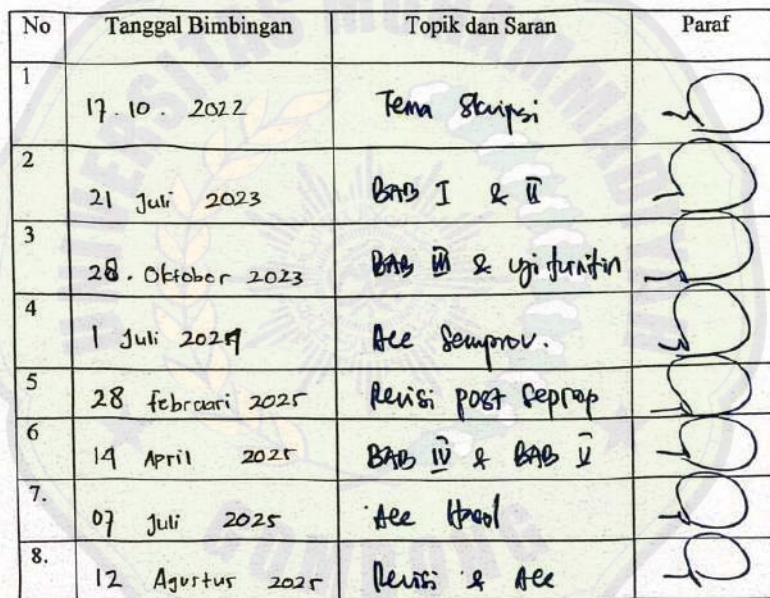 No Tanggal Bimbingan Topik dan Saran Paraf
1 17.10.2022 Tema Skripsi
2 21 Juli 2023 BAB I & II
3 28. Oktober 2023 BAB III & uji turnitin
4 1 Juli 2024 Acc Semprop.
5 28 februari 2025 Revisi post Seprop
6 14 April 2025 BAB IV & BAB V
7. 07 Juli 2025 Acc Hasil
8. 12 Agustus 2025 Revisi & Acc
UNIVERSITAS MUHAMMADIYAH
GOMBONG